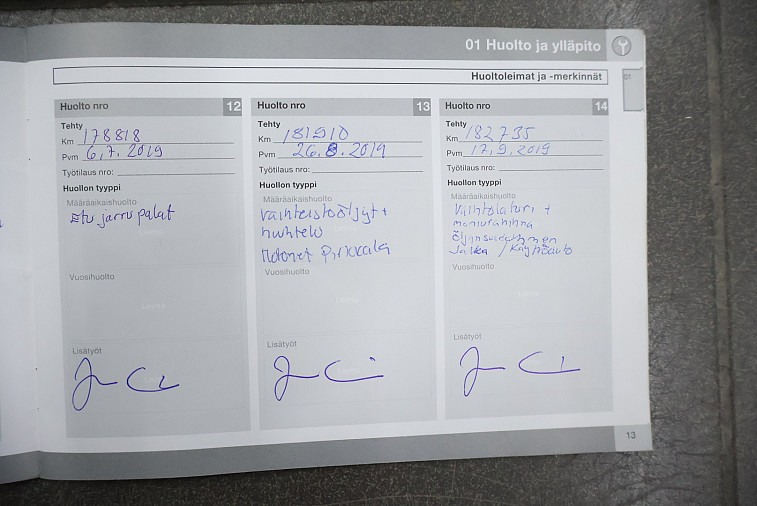 01 Huolto ja ylläpito
Huoltoleimat ja -merkinnät
01
Huolto nro 12
Tehty
Km 178818
Pvm 6.7.2019
Työtilaus nro:
Huollon tyyppi
Määräaikaishuolto
Etu jarru palat
Vuosihuolto
Lisätyöt
Huolto nro 13
Tehty
Km 181510
Pvm 26.8.2019
Työtilaus nro:
Huollon tyyppi
Määräaikaishuolto
Vaihteistoöljyt +
huuhtelu
Motonet Pirkkala
Vuosihuolto
Lisätyöt
Huolto nro 14
Tehty
Km 182735
Pvm 17.9.2019
Työtilaus nro:
Huollon tyyppi
Määräaikaishuolto
Vaihtolaturi +
moniurahihna
öljynsuodattimen
Jalka / Käyttöauto
Vuosihuolto
Lisätyöt
13